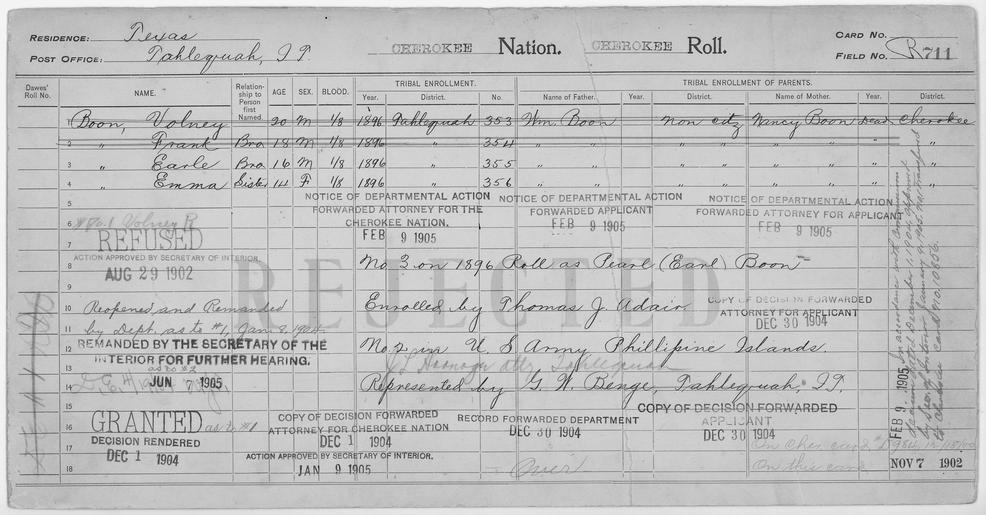 RESIDENCE: Texas
POST OFFICE: Tahlequah, I.T.
CHEROKEE Nation. CHEROKEE Roll.
CARD NO.
FIELD NO. R 711
Dawes' Roll No. NAME. Relationship to Person first Named. AGE SEX. BLOOD. TRIBAL ENROLLMENT. Year. District. No. TRIBAL ENROLLMENT OF PARENTS. Name of Father. Year. District. Name of Mother. Year. District.
1 Boon, Volney 20 M 1/8 1896 Tahlequah 353 Wm. Boon non citz Nancy Boon Dead Cherokee
2 " Frank Bro. 18 M 1/8 1896 " 354 " " " " " "
3 " Earle Bro 16 M 1/8 1896 " 355 " " " " " "
4 " Emma Sister 14 F 1/8 1896 " 356 " " " " " "
5
NOTICE OF DEPARTMENTAL ACTION FORWARDED ATTORNEY FOR THE CHEROKEE NATION. FEB 9 1905
NOTICE OF DEPARTMENTAL ACTION FORWARDED APPLICANT FEB 9 1905
NOTICE OF DEPARTMENTAL ACTION FORWARDED ATTORNEY FOR APPLICANT FEB 9 1905
6 #No. 1 Volney R
7 REFUSED
ACTION APPROVED BY SECRETARY OF INTERIOR.
8 AUG 29 1902
9
REJECTED
No. 3 on 1896 Roll as Pearl (Earl) Boon
10 Reopened and Remanded
11 by Dept. as to #1, Jan. 8, 1904
Enrolled by Thomas J. Adair
COPY OF DECISION FORWARDED ATTORNEY FOR APPLICANT DEC 30 1904
12 REMANDED BY THE SECRETARY OF THE INTERIOR FOR FURTHER HEARING.
as to #2
13 JUN 7 1905
No. 2 in U. S Army Phillipine Islands.
14 Represented by G. W. Benge, Tahlequah, I.T.
15
16 GRANTED as to #1
17 DECISION RENDERED
18 DEC 1 1904
COPY OF DECISION FORWARDED ATTORNEY FOR CHEROKEE NATION DEC 1 1904
ACTION APPROVED BY SECRETARY OF INTERIOR. JAN 9 1905
RECORD FORWARDED DEPARTMENT DEC 30 1904
COPY OF DECISION FORWARDED APPLICANT DEC 30 1904
Over
On this card
NOV 7 1902
FEB 9 1905